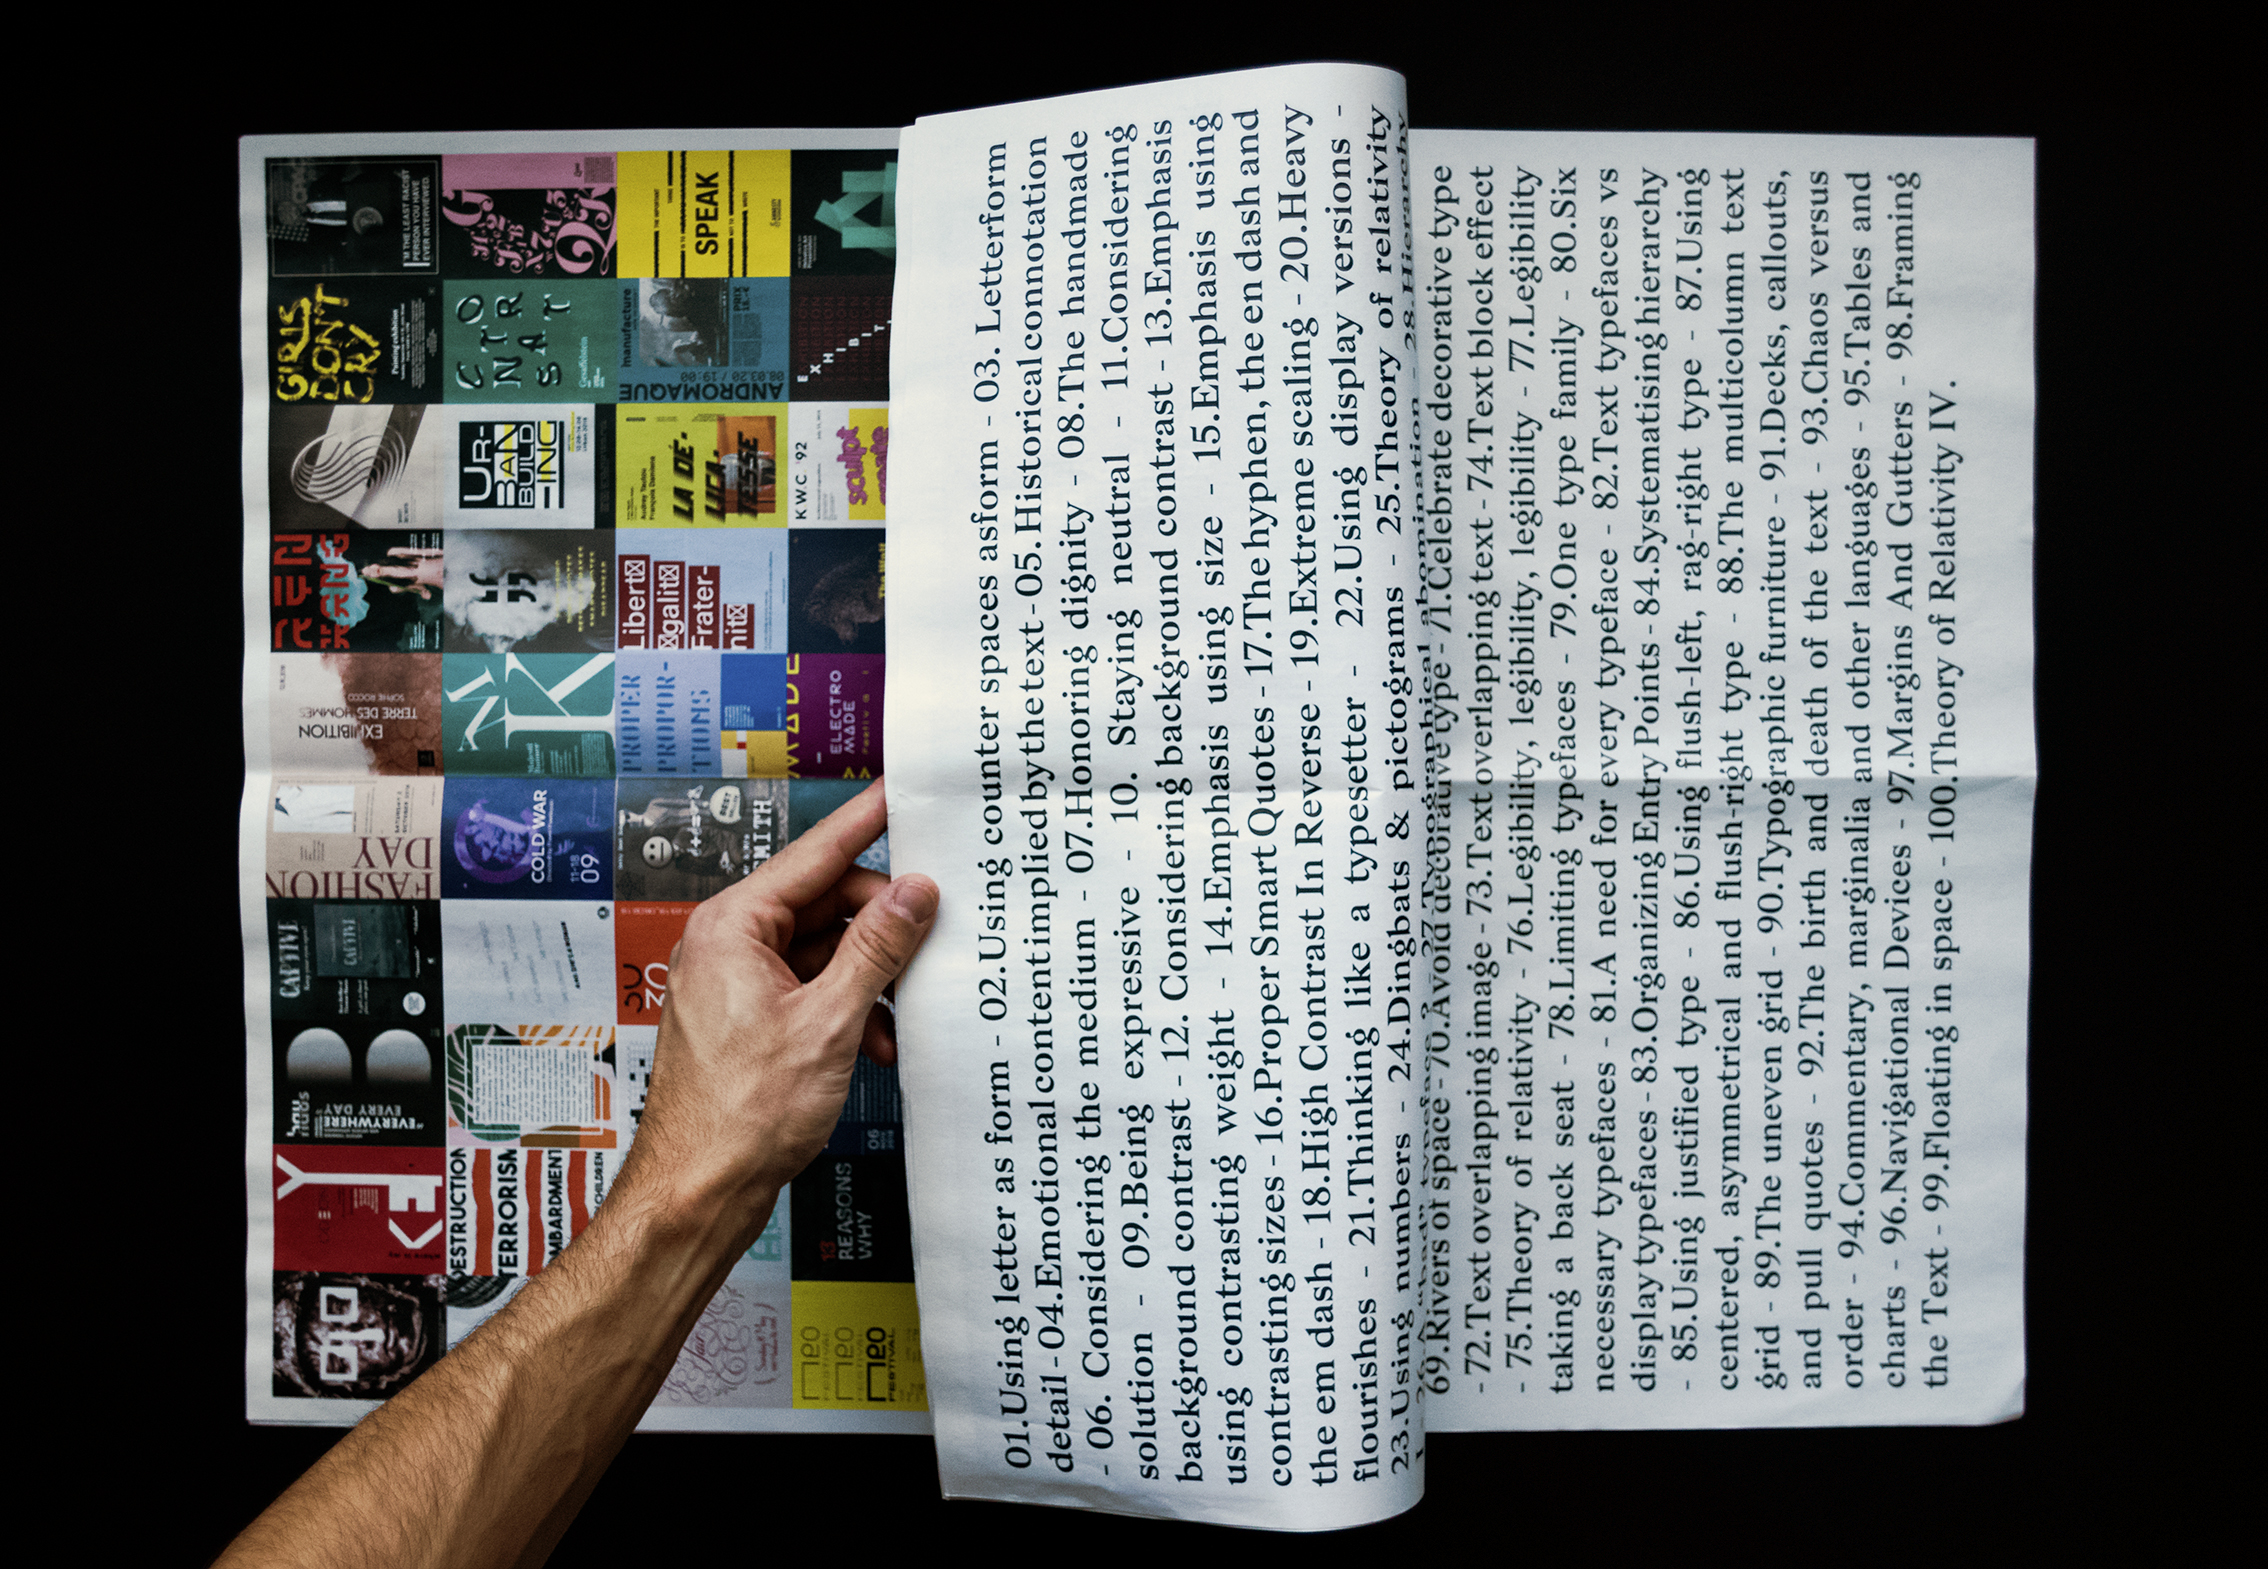 I'M THE LEAST RACIST
PERSON YOU HAVE
EVER INTERVIEWED.
SPEAK
GIRLS
DON'T
CRY
Painting exhibition
CO
NTR
SAT
manufacture
ANDROMAQUE
08.03.20 / 19:00
EXHIBIT
UR-
BAN
BUILD
-ING
Audrey Tautou
François Damiens
LA DÉ-
LICA-
TESSE
K.W.C '92
sculpt
Libert
galit
Frater-
nit
SOPHIE ROCCO
TERRE DES HOMMES
EXHIBITION
K
PROPER
PROPOR-
TIONS
MADE
ELECTRO
MADE
FASHION
DAY
SATURDAY 2
OCTOBER 2016
COLD WAR
11-18
09
SMITH
CAPTIVE
CAPTIVE
30
"EVERYWHERE
EVERY DAY
KEY
DESTRUCTION
TERRORISM
BOMBARDMENT
CHILDREN
06
13
REASONS
WHY
neo
FESTIVAL
neo
FESTIVAL
neo
FESTIVAL
01.Using letter as form - 02.Using counter spaces asform - 03. Letterform
detail - 04.Emotional content implied by the text - 05. Historical connotation
- 06. Considering the medium - 07.Honoring dignity - 08.The handmade
solution - 09.Being expressive - 10. Staying neutral - 11.Considering
background contrast - 12. Considering background contrast - 13.Emphasis
using contrasting weight - 14.Emphasis using size - 15.Emphasis using
contrasting sizes - 16.Proper Smart Quotes - 17.The hyphen, the en dash and
the em dash - 18.High Contrast In Reverse - 19.Extreme scaling - 20.Heavy
flourishes - 21.Thinking like a typesetter - 22.Using display versions -
23.Using numbers - 24.Dingbats & pictograms - 25.Theory of relativity
typeface ? - 27.Typographical abomination - 28.Hierarchy
69.Rivers of space - 70.Avoid decorative type - 71.Celebrate decorative type
- 72.Text overlapping image - 73.Text overlapping text - 74.Text block effect
- 75.Theory of relativity - 76.Legibility, legibility, legibility - 77.Legibility
taking a back seat - 78.Limiting typefaces - 79.One type family - 80.Six
necessary typefaces - 81.A need for every typeface - 82.Text typefaces vs
display typefaces - 83.Organizing Entry Points - 84.Systematising hierarchy
- 85.Using justified type - 86.Using flush-left, rag-right type - 87.Using
centered, asymmetrical and flush-right type - 88.The multicolumn text
grid - 89.The uneven grid - 90.Typographic furniture - 91.Decks, callouts,
and pull quotes - 92.The birth and death of the text - 93.Chaos versus
order - 94.Commentary, marginalia and other languages - 95.Tables and
charts - 96.Navigational Devices - 97.Margins And Gutters - 98.Framing
the Text - 99.Floating in space - 100.Theory of Relativity IV.